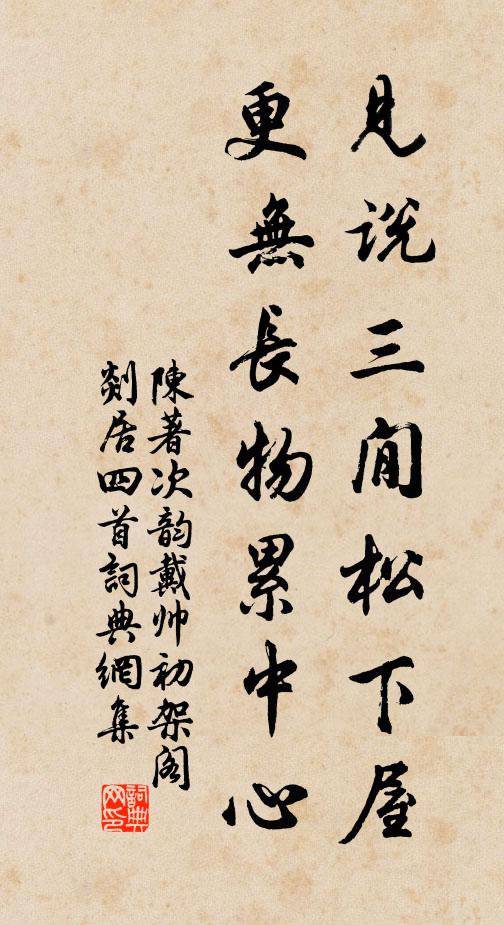 見說三間松下屋
更無長物累中心
陳著次韵戴帅初架阁
剡居四首詞典網集
詞典网印